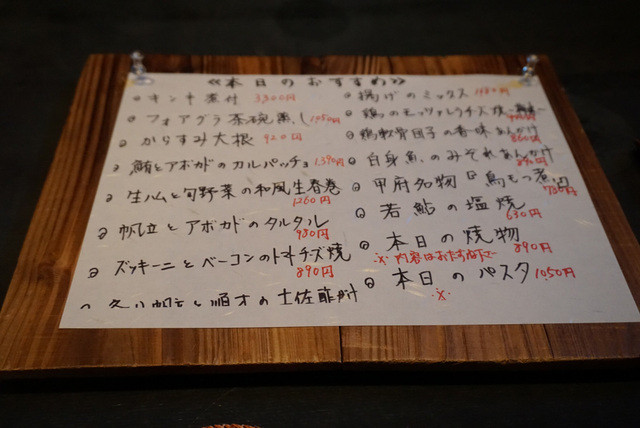 ≪本日のおすすめ≫
キンキ煮付 3,300円
フォアグラ茶碗蒸し 1,050円
からすみ大根 920円
鮪とアボカドのカルパッチョ 1,390円
生ハムと旬野菜の和風生春巻
1260円
帆立とアボカドのタルタル
950円
ズッキーニとベーコンのトマトチーズ焼
890円
の土佐酢
揚げのミックス
鶏のモッツァレラチーズ焼
鶏軟骨団子の香味あんかけ
白身魚のみぞれあんかけ
甲府名物『鳥もつ煮』
730円
若鮎の塩焼
630円
本日の焼物
※内容はおたずね下さい 890円
本日のパスタ 1050円
※